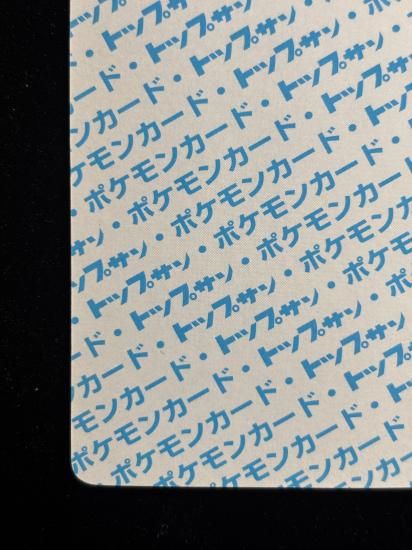 ード・
カード・トップサン・
ンカード・トップサン・ポ
ケモンカード・トップサン・
・ポケモンカード・トップサン
ン・ポケモンカード・トップ
プサン・ポケモンカード・
トップサン・ポケモンカード
・トップサン・ポケモンカ
ード・トップサン・ポケモ
カード・トップサン・ポ
モンカード・トップサン・
ポケモンカード・トップサン
・ポケモンカード・ト
ポケモンカード
ポケモンカ